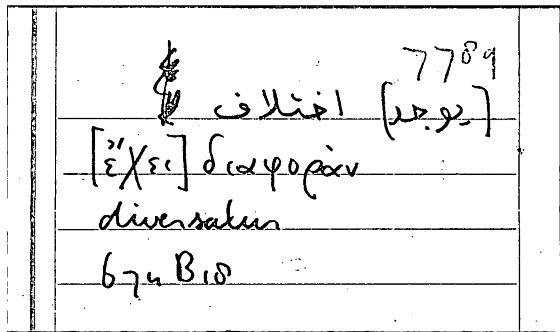 7789
[يوجد] اختلاف
[ἔχει] διαφοράν
diversatur
671 B 18